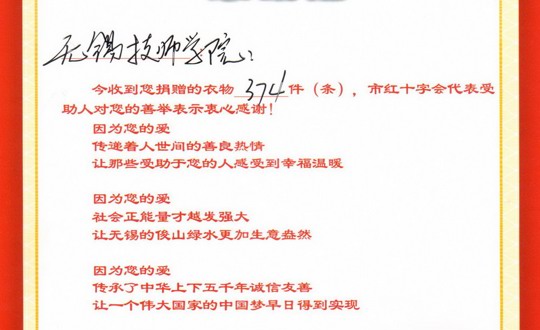 无锡技师学院：
今收到您捐赠的衣物374件（条），市红十字会代表受
助人对您的善举表示衷心感谢！
因为您的爱
传递着人世间的善良热情
让那些受助于您的人感受到幸福温暖
因为您的爱
社会正能量才越发强大
让无锡的俊山绿水更加生意盎然
因为您的爱
传承了中华上下五千年诚信友善
让一个伟大国家的中国梦早日得到实现